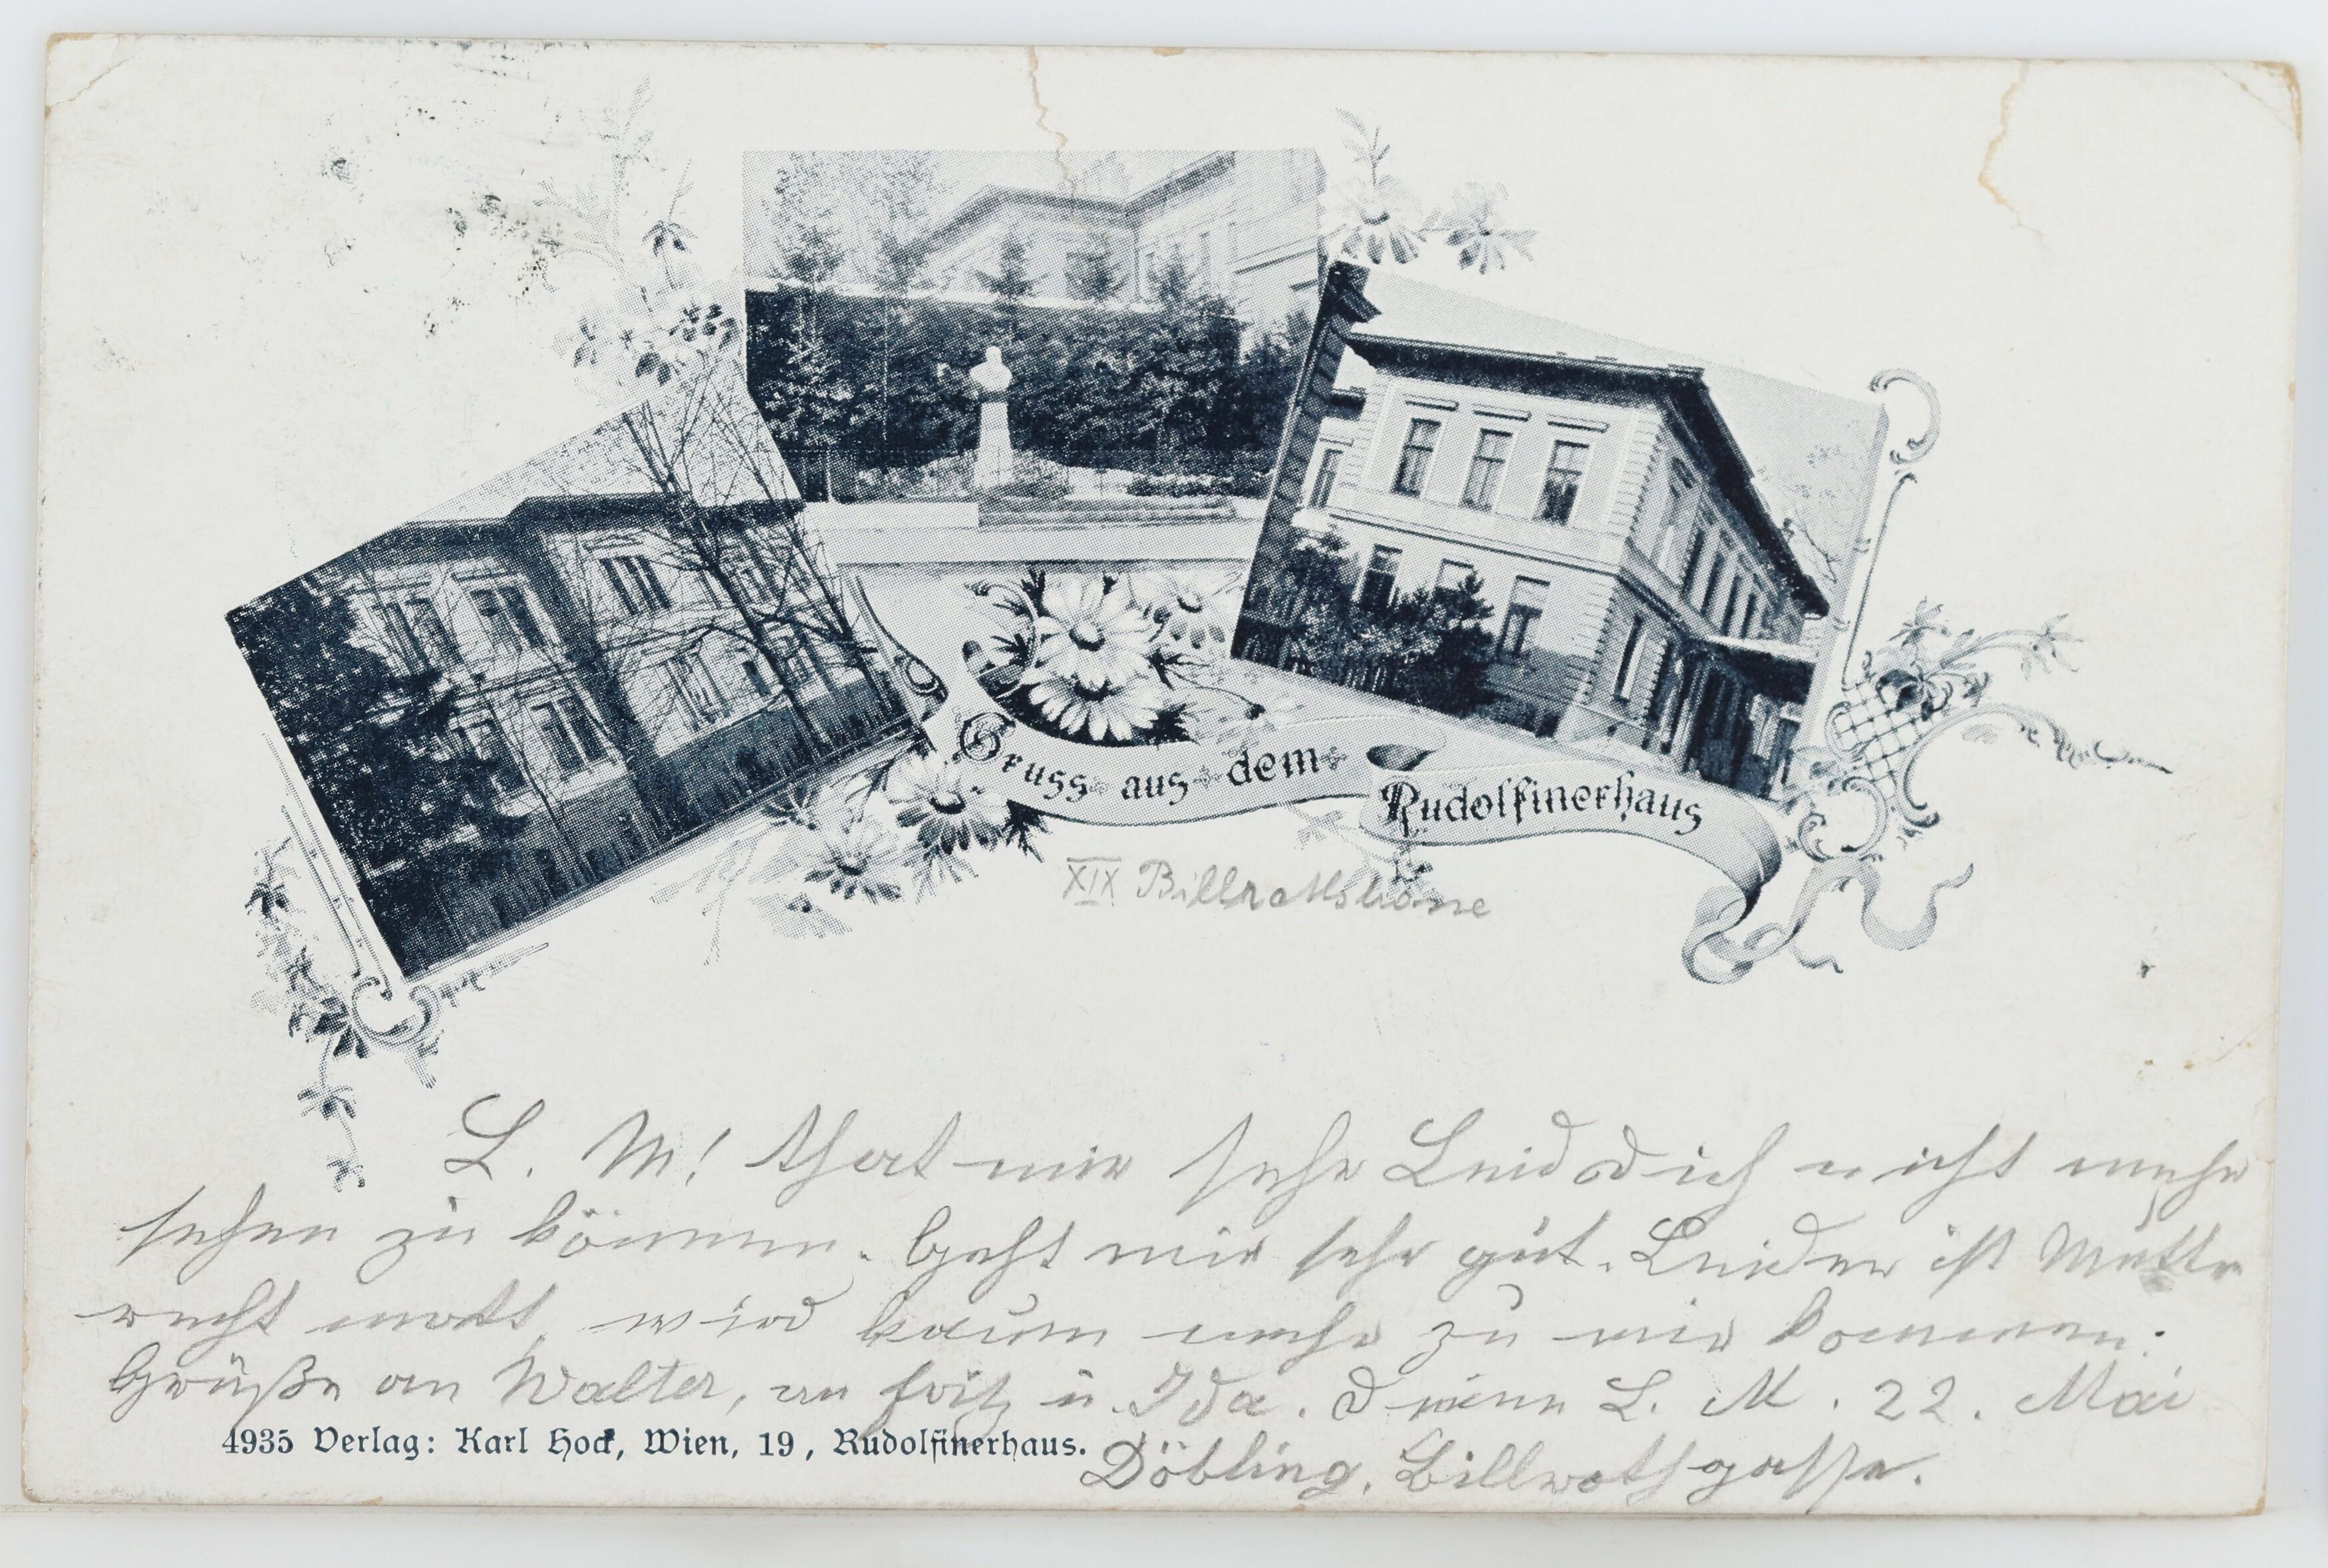 Gruss aus dem Rudolfinerhaus
XIX
L. M! That mir sehr Leid dich nicht mehr
sehen zu können. Geht mir sehr gut. Leider ist Mutter
recht matt, wird kaum mehr zu mir kommen.
Grüße an Walter, an Fritz u. Ida. Deine L. M. 22. Mai
4935 Verlag: Karl Hock, Wien, 19, Rudolfinerhaus.
Döbling, Billrothgasse.